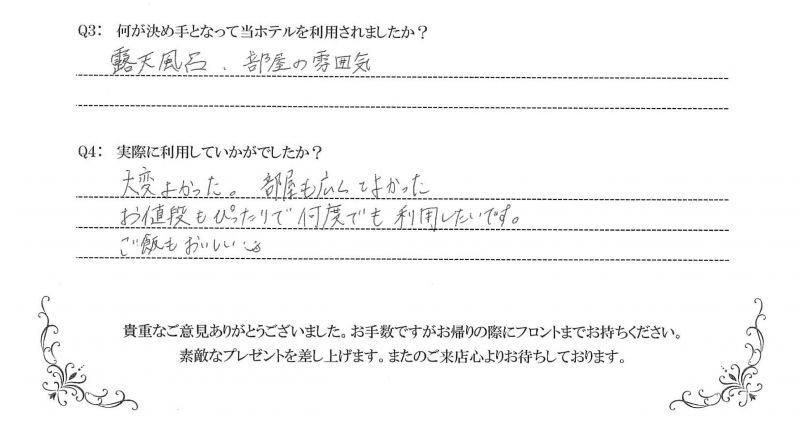 Q3: 何が決め手となって当ホテルを利用されましたか？
露天風呂、部屋の雰囲気
Q4: 実際に利用していかがでしたか？
大変よかった。部屋も広くてよかった
お値段もぴったりで何度でも利用したいです。
ご飯もおいしい
貴重なご意見ありがとうございました。お手数ですがお帰りの際にフロントまでお持ちください。
素敵なプレゼントを差し上げます。またのご来店心よりお待ちしております。